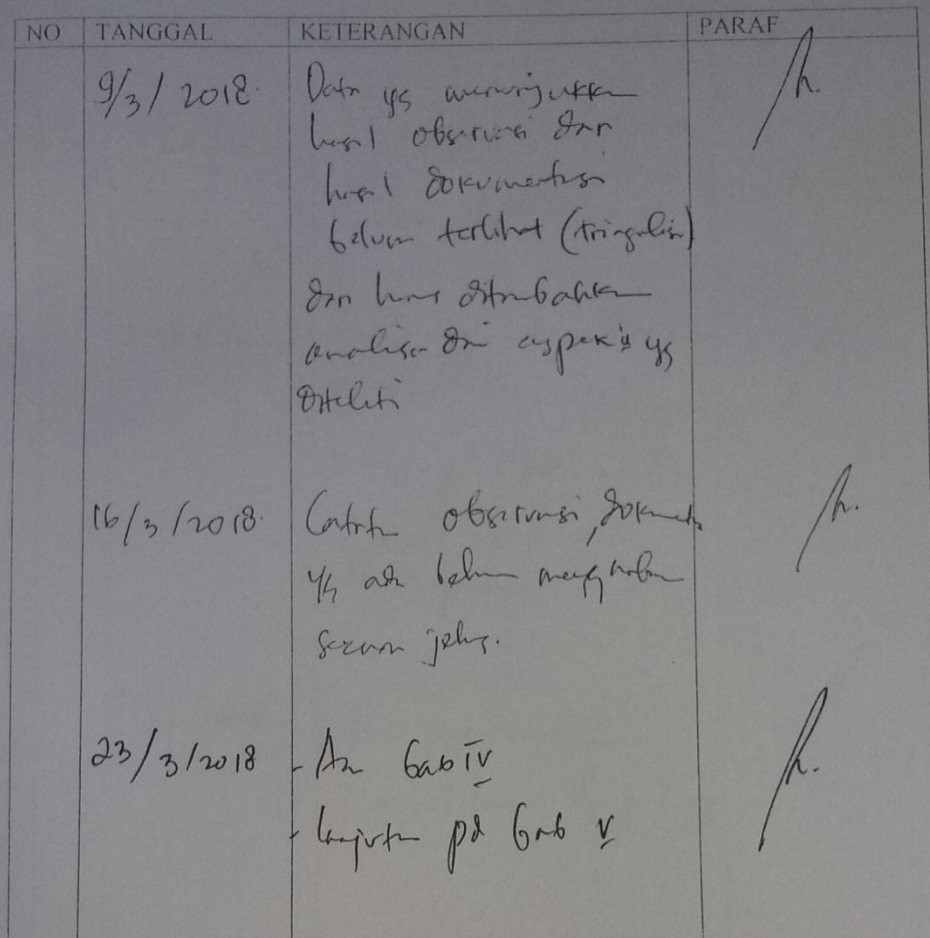 NO TANGGAL KETERANGAN PARAF
9/3/2018. Data yg menunjukkan
hasil observasi dan
hasil dokumentasi
belum terlihat (triangulasi)
dan harus ditambahkan
analisa dari aspek's yg
diteliti
16/3/2018. Catatan observasi, dokumentasi
yg ada belum menggambarkan
secara jelas.
23/3/2018 - Acc bab IV
- lanjutkan pd bab V